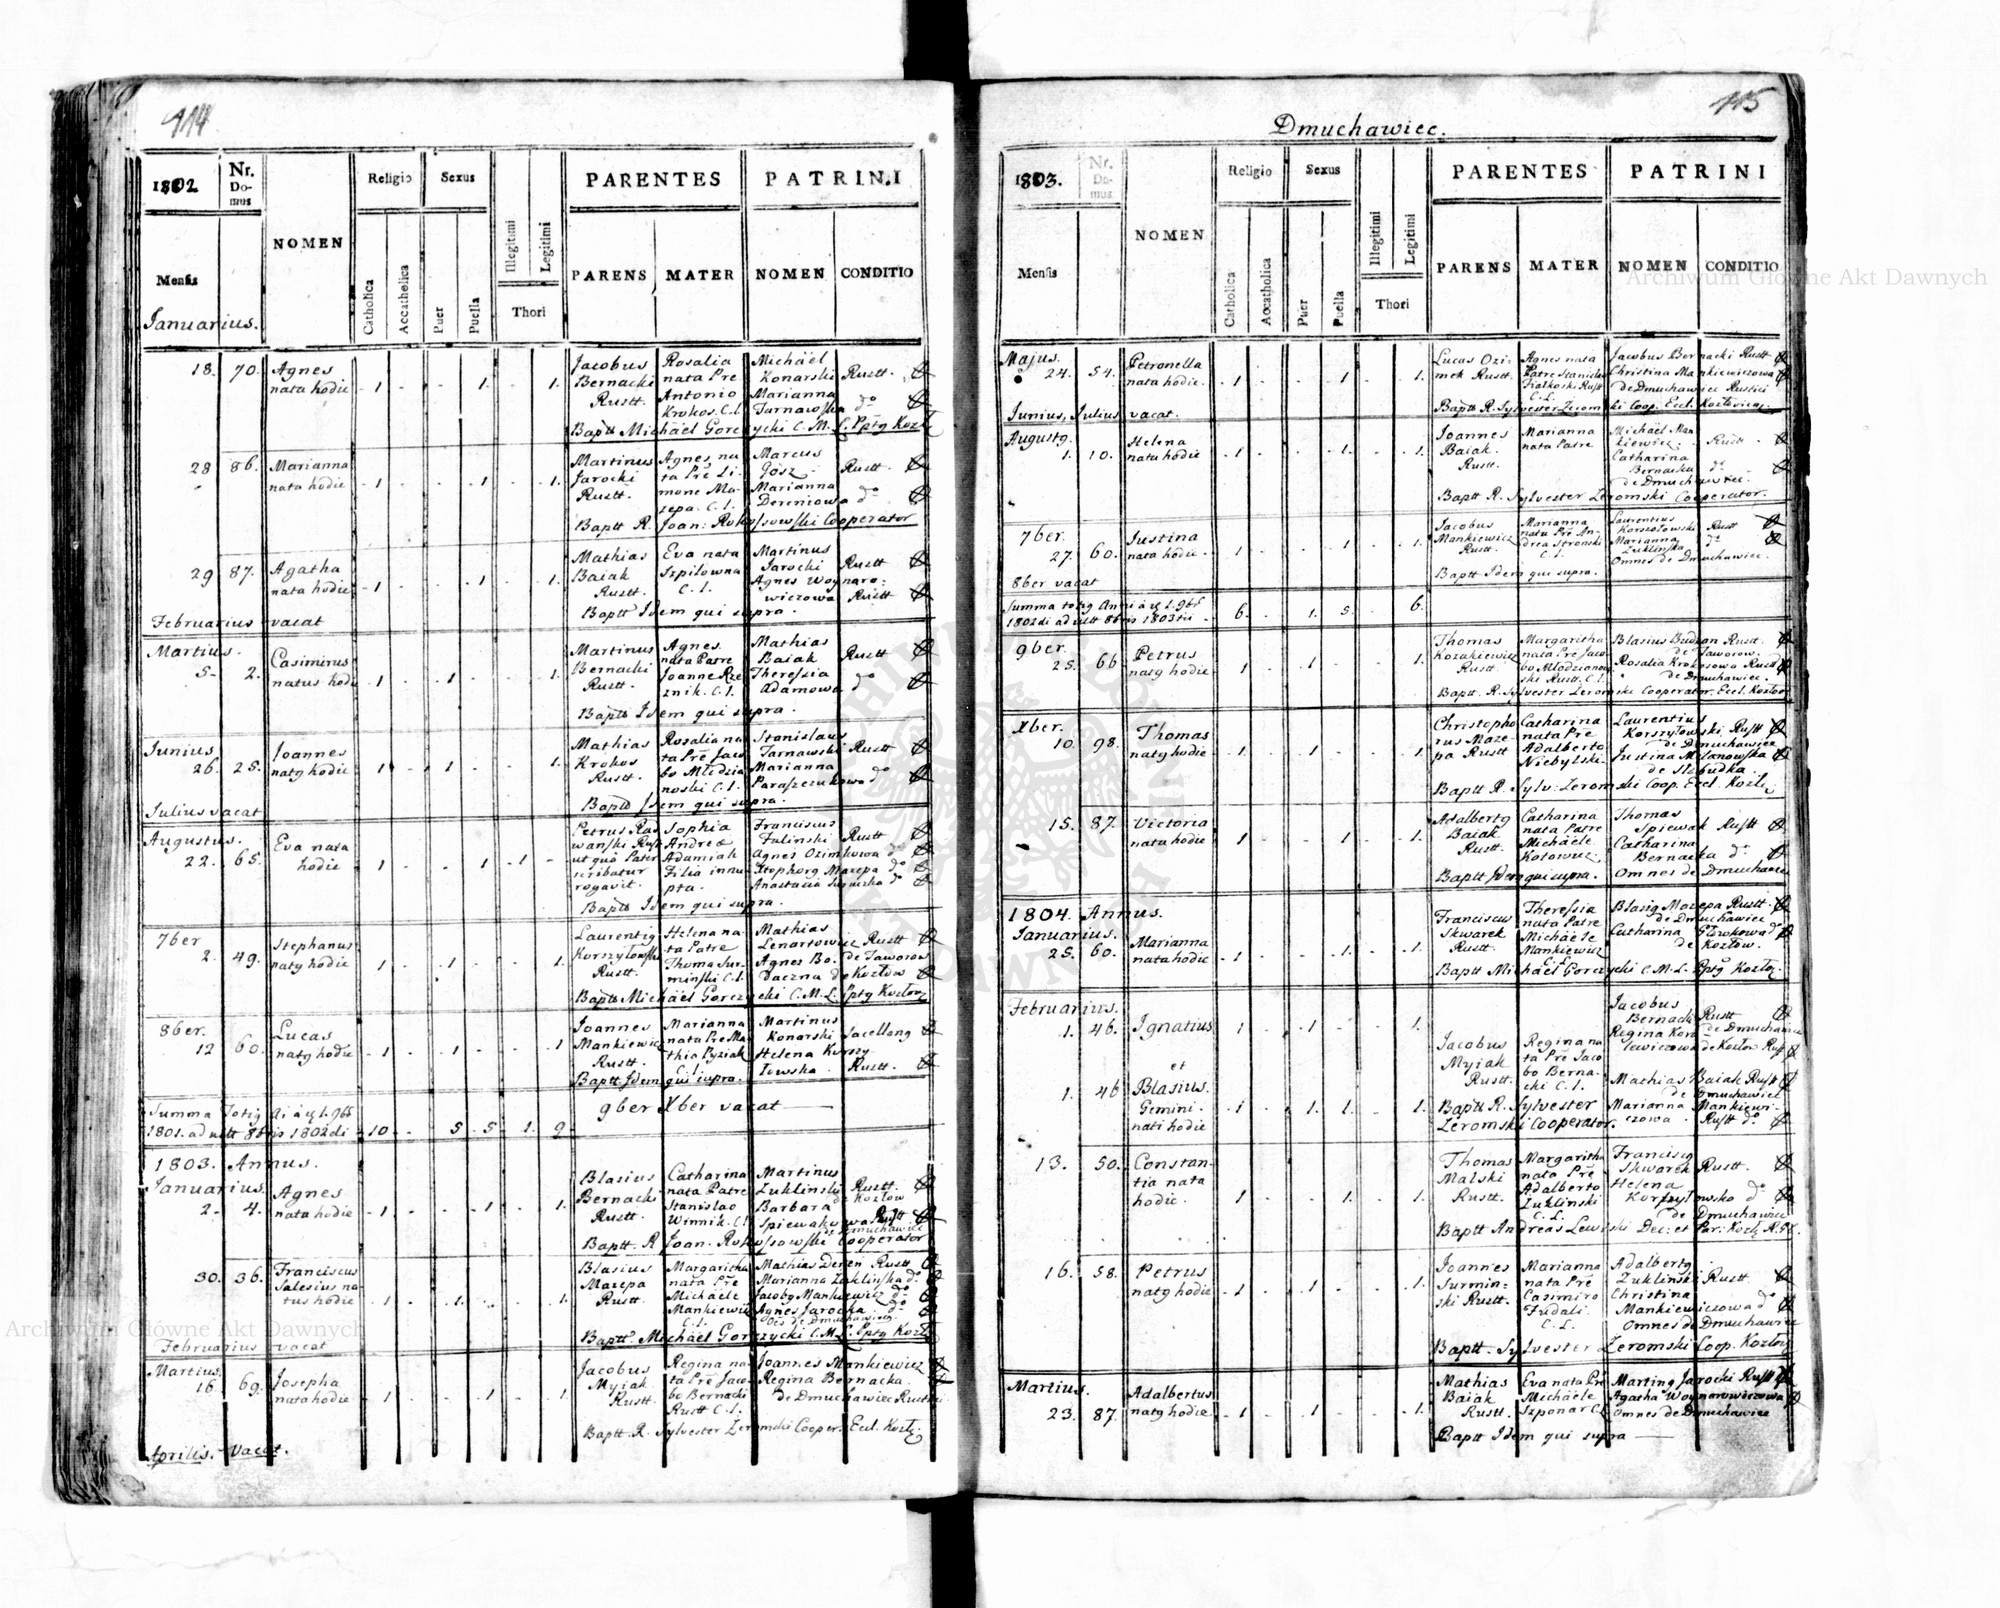 114
1802
Nr. Domus
NOMEN
Religio
Sexus
PARENTES
PATRINI
Mensis
Catholica
Accatholica
Puer
Puella
Illegitimi
Legitimi
Thori
PARENS
MATER
NOMEN
CONDITIO
Januarius.
18. 70. Agnes
nata hodie 1 1. 1.
Jacobus Rosalia Michaël
Bernacki nata Pre Konarski Rustt.
Rustt. Antonio Marianna
Krokos C.L. Tarnawska do
Baptt Michaël Gorczycki C.M.
28 86. Marianna
nata hodie 1 1 1.
Martinus Agnes na Marcus
Jarocki ta Pre Li Gosz Rustt.
Rustt. mone Ma- Marianna
zepa. C.L. Dereniowa do
Baptt R. Joan: Rokossowski Cooperator
29 87. Agatha
nata hodie 1 1 1.
Mathias Eva nata Martinus
Baiak Szpilowna Jarocki Rustt
Rustt. C.L. Agnes Woynaro-
wiczowa Rustt
Baptt Idem qui supra.
Februarius vacat
Martius.
5. 2. Casimirus
natus hodie 1 1 1.
Martinus Agnes Mathias
Bernacki nata Patre Baiak Rustt
Rustt. Joanne Rze Theressia
znik. C.L. Adamowa do
Baptt Idem qui supra.
Junius
26. 25. Joannes
natg hodie 1 1 1.
Mathias Rosalia na Stanislaus
Krokos ta Pre Jaco Tarnawski Rustt
Rustt. bo Młodzia Marianna
noski C.L. Paraszczukowa do
Baptt Idem qui supra.
Julius vacat
Augustus.
22. 65. Eva nata
hodie 1 1 1
Sophia Franciscus
Andreæ Fulinski Rustt
ut qua Pater Adamiak Agnes Ozimkowa do
scribatur Filia innu Xtophorg Mazepa do
rogavit. pta. Anastacia do
Baptt Idem qui supra.
7ber
2. 49. Stephanus
natg hodie 1 1 1.
Laurentig Helena na Mathias
ta Patre Lenartowicz Rustt
Rustt. Thoma Sur Agnes Bo. de Jaworow
minski C.L. Daczna de Kozłow
Baptt Michaël Gorczycki C.M.L.
8ber.
12 60. Lucas
natg hodie 1 1 1
Joannes Marianna Martinus
Mankiewicz nata Pre Ma Konarski Sacellang
Rustt. thia Pyziak Helena Korszy
C.L. łowska Rustt.
Baptt Idem qui supra.
9ber Xber vacat
1801. ad ultt 8bris 1802di 10 5 5 1. 9
1803. Annus.
Januarius.
2. 4. Agnes
nata hodie 1 1 1.
Blasius Catharina Martinus
Bernacki nata Patre Zuklinski Rustt.
Rustt. Stanislao Barbara de Kozłow
Winnik. C.L. Spiewakowa Rustt
Baptt. R Joan. Rokossowski Cooperator
30. 36. Franciscus
Salesius na
tus hodie 1 1. 1.
Blasius Margaritha Mathias Deren Rustt
Mazepa nata Pre Marianna Zuklinska do
Rustt Michaële Jacobg Mankiewicz do
Mankiewicz Agnes Jarocka do
Baptt. Michaël Gorczycki C.M.L.
Februarius vacat
Martius.
16. 69. Josepha
nata hodie 1 1 1.
Jacobus Regina na Joannes Mankiewicz
Myiak ta Pre Jaco Regina Bernacka
Rustt. bo Bernacki de Dmuchawiec Rustici
Rustt C.L.
Baptt. R. Sylvester Zeromski Cooper. Eccl. Kozł.
Aprilis. Vacat.
115
Dmuchawiec.
1803.
Nr. Domus
NOMEN
Religio
Sexus
PARENTES
PATRINI
Mensis
Catholica
Accatholica
Puer
Puella
Illegitimi
Legitimi
Thori
PARENS
MATER
NOMEN
CONDITIO
Majus.
24. 54. Petronella
nata hodie 1 1 1.
Lucas Ozi- Agnes nata Jacobus Bernacki Rustt
mek Rustt. Patre Stanislao Christina Mankiewiczowa
Fialkoski Rustt de Dmuchawiec Rustici
C.L.
Baptt R. Sylvester Zeromski Coop. Eccl.
Junius, Julius vacat.
Augustg.
1. 10. Helena
nata hodie 1 1 1.
Joannes Marianna Michaël Man
Baiak nata Patre kiewicz Rustt
Rustt. Catharina
Bernacka do
de Dmuchawiec.
Baptt R. Sylvester Zeromski Cooperator.
7ber.
27. 60. Justina
nata hodie 1 1 1.
Jacobus Marianna Laurentius
Mankiewicz nata Pre An- Korszołowski Rustt
Rustt. drea Stronski Marianna do
C.L. Zuklinska
Omnes de Dmuchawiec.
Baptt Idem qui supra.
8ber vacat
Summa totig
1802di ad ultt 8bris 1803tii 6. 1. 5. 6.
9ber.
25. 66 Petrus
natg hodie 1 1 1.
Thomas Margaritha Blasius Budzon Rustt.
Kozakiewicz nata Pre Jaco- de Jaworow.
Rustt. bo Młodzianow Rosalia Krokosowa Rustt
ski Rustt. C.L. de Dmuchawiec.
Baptt. R. Sylvester Zeromski Cooperator. Eccl.
Xber.
10. 98. Thomas
natg hodie 1 1 1.
Christopho Catharina Laurentius
rus Maze- nata Pre Korszyłowski Rustt
pa Rustt Adalberto de Dmuchawiec
Niebylski. Justina
de Słobudka.
Baptt R. Sylv: Zeromski Coop. Eccl. Kozł.
15. 87. Victoria
nata hodie 1 1 1.
Adalbertg Catharina Thomas
Baiak nata Patre Spiewak Rustt
Rustt. Michaële Catharina
Kotowicz. Bernacka do
Baptt Idem qui supra. Omnes de Dmuchawiec
1804. Annus.
Januarius.
25. 60. Marianna
nata hodie 1 1 1.
Franciscus Theressia Blasig Mazepa Rustt.
Skwarek nata Patre de Dmuchawiec
Rustt. Michaële Catharina
Mankiewicz de Kozłow.
C.L.
Baptt Michaël Gorczycki C.M.L.
Februarius.
1. 46. Ignatius 1 1 1.
et
1. 46 Blasius.
Gemini
nati hodie 1 1. 1. 1.
Jacobus
Bernacki Rustt
Jacobus Regina na de Dmuchawiec
Myiak ta Pre Jaco
Rustt. bo Berna-
cki C.L. Mathias Baiak Rustt
de Dmuchawiec
Baptt R. Sylvester Marianna Mankiewi-
Zeromski Cooperator. czowa Rustt do
13. 50. Constan-
tia nata
hodie. 1 1 1.
Thomas Margaritha Franciscg
Malski nata Pre Skwarek Rustt.
Rustt. Adalberto Helena
Zuklinski Korszyłowska do
C.L. de Dmuchawiec
Baptt Andreas
16. 58. Petrus
natg hodie 1 1 1.
Joannes Marianna Adalbertg
Surmin- nata Pre Zuklinski Rustt
ski Rustt. Casimiro Christina
Fudali. Mankiewiczowa do
C.L. Omnes de Dmuchawiec
Baptt. Sylvester Zeromski Coop. Kozłow
Martius.
23. 87. Adalbertus
natg hodie 1 1 1.
Mathias Eva nata Pre Marting Jarocki Rustt
Baiak Michaële Agatha Woynarowiczowa
Rustt. Szponar C.L. Omnes de Dmuchawiec
Baptt Idem qui supra
Archiwum Główne Akt Dawnych
Archiwum Główne Akt Dawnych